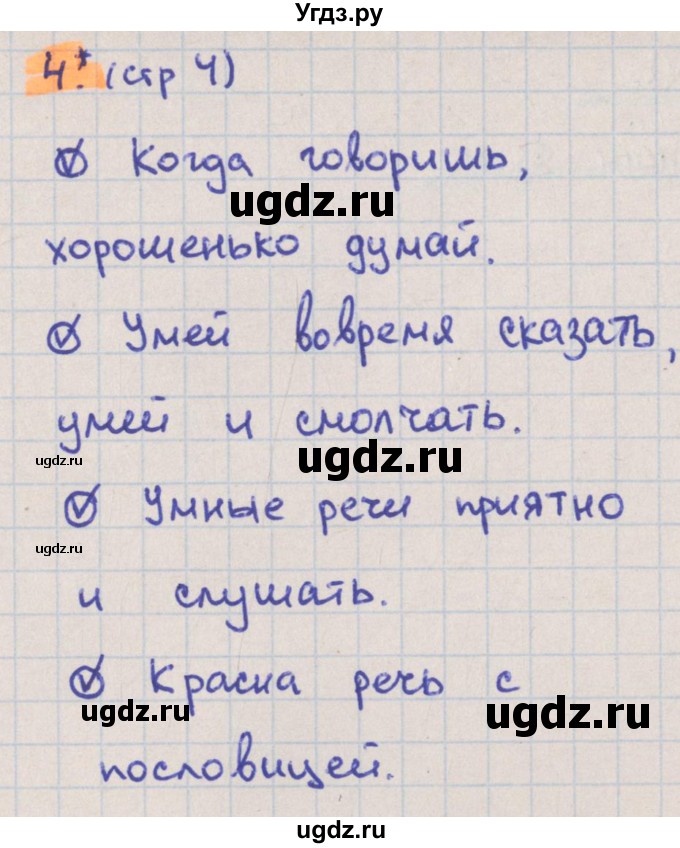 Угдз.ру
4.* (стр 4)
Когда говоришь,
ugdz.ru
хорошенько думай.
Умей вовремя сказать,
умей и смолчать.
ugdz.ru
ugdz.ru
Умные речи приятно
ugdz.ru
и слушать.
Красна речь с
ugdz.ru
ugdz.ru
пословицей.
ugdz.ru